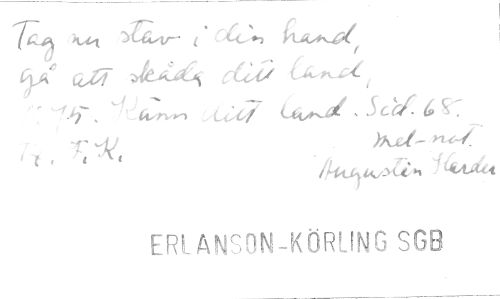 Tag nu stav i din hand,
gå att skåda ditt land,
Känn ditt land. Sid. 68.
F. K. mel-not.
Augustin Harder
ERLANSON-KÖRLING SGB